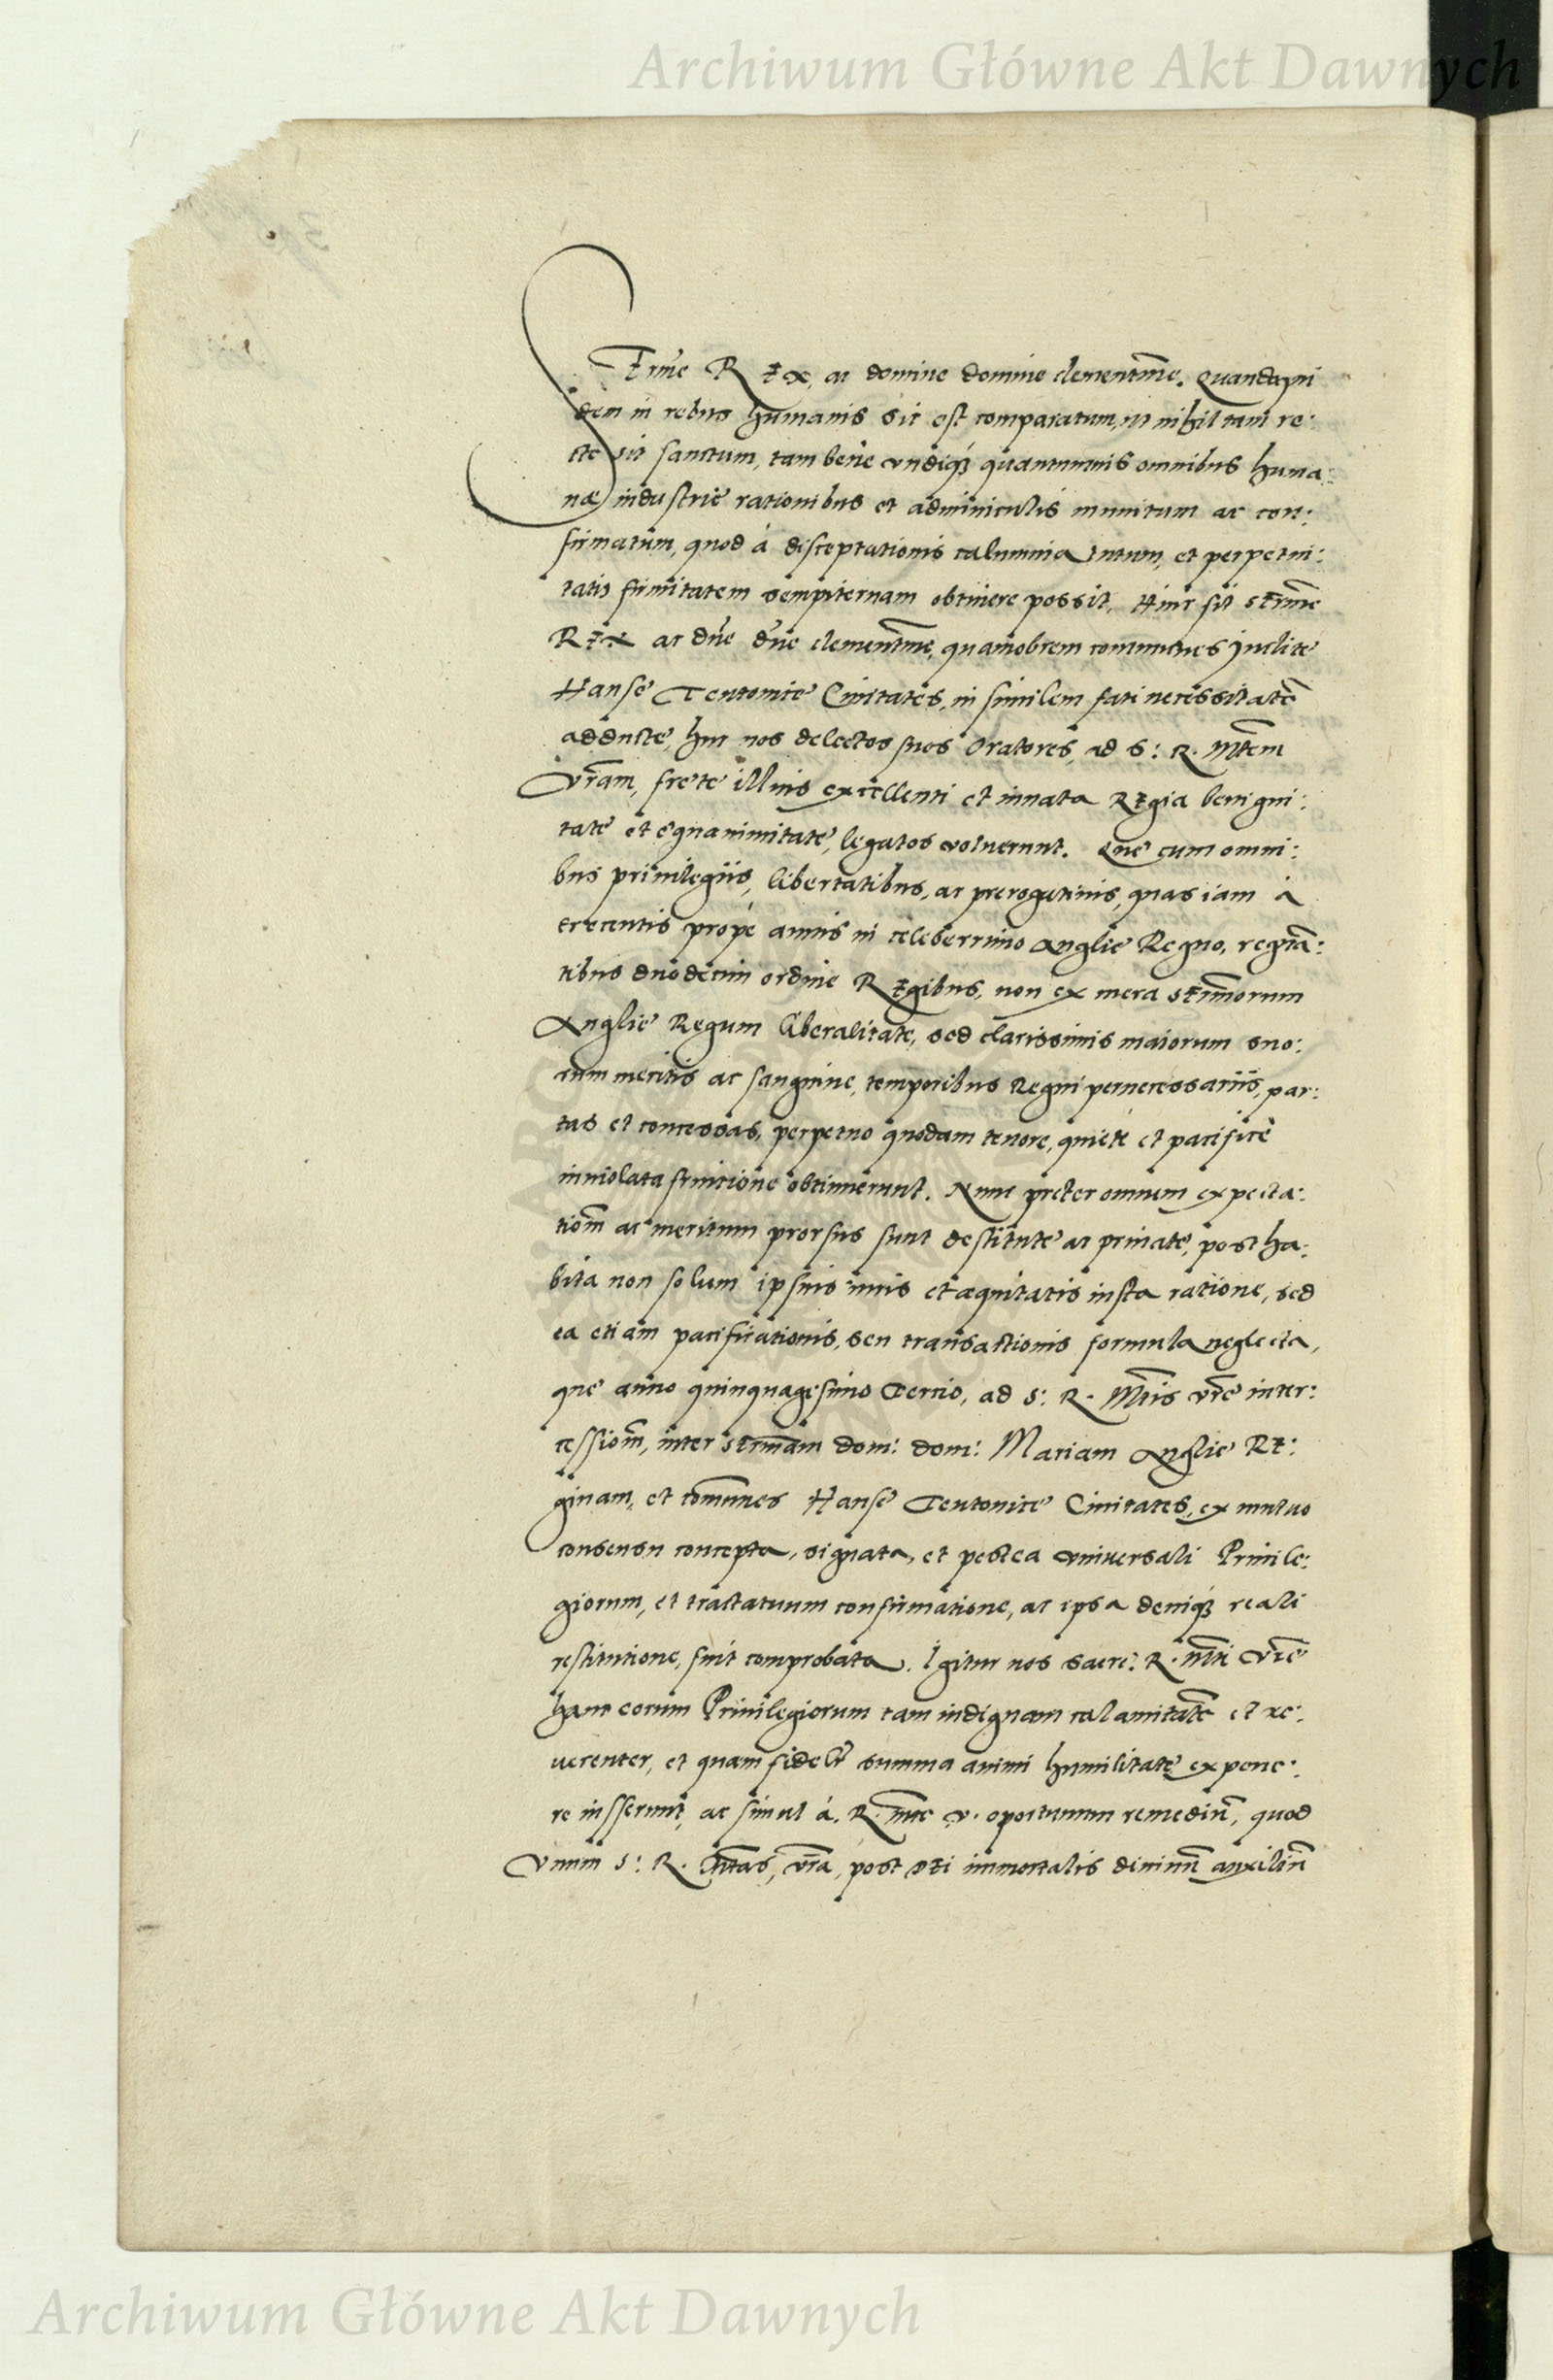 Archiwum Główne Akt Dawnych
Sermē REX, ac domine domine clementīme. Quandoqui
dem in rebus humanis sic est comparatum, ut nihil tam re:
cte sit sanctum, tam bene vndiq; quantumuis omnibus huma:
næ industrie rationibus et adminiculis munitum ac con:
firmatum, quod á disceptationis calumnia tutum, et perpetui:
tatis firmitatem sempiternam obtinere possit. Hinc fit sermē
REX ac dn̄e dn̄e clementīme, quamobrem communes Inclite
Hanse Teutonice Ciuitates, in similem fati necessitatē
adducte, huc nos delectos suos Oratores, ad S: R. Mtem
Vrām, frete illius excellenti et innata Regia benigni:
tate et equanimitate, legatos voluerunt. Que cum omni:
bus priuilegiis, libertatibus, ac prerogatiuis, quas iam á
trecentis propé annis in celeberrimo Anglie Regno, regnā:
tibus duodecim ordine Regibus, non ex mera sermorum
Anglie Regum liberalitate, sed clarissimis maiorum suo:
rum meritis ac sanguine, temporibus Regni pernecessariis, par:
tas et concessas, perpetuo quodam tenore, quieté et pacificè
inuiolata fruitione obtinuerunt. Nunc preter omnem expecta:
tiom̄ ac meritum prorsus sunt destitute ac priuate, post ha:
bita non solum ipsius iuris et æquitatis iusta ratione, sed
ea etiam pacificationis, seu transactionis formula neglecta,
que anno quinquagesimo Tercio, ad S: R. Mtis vrē inter:
cessiom̄, inter sermam dom: dom: Mariam Anglie Re:
ginam, et com̄unes Hanse Teutonice Ciuitates, ex mutuo
consensu concepta, signata, et postea vniuersali Priuile:
giorum, et tractatuum confirmatione, ac ipsa deniq; reali
restitutione, fuit comprobata. Igitur nos sacre: R. Mti Vrē
hanc eorum Priuilegiorum tam indignam calamitatē et re:
uerenter, et quam fidelr summa animi humilitate expone:
re iusserunt, ac simul á. R. mte v. oportunum remediū, quod
Vnum S: R. Mtas, vrā, post Dei immortalis diuinū auxiliū
Archiwum Główne Akt Dawnych